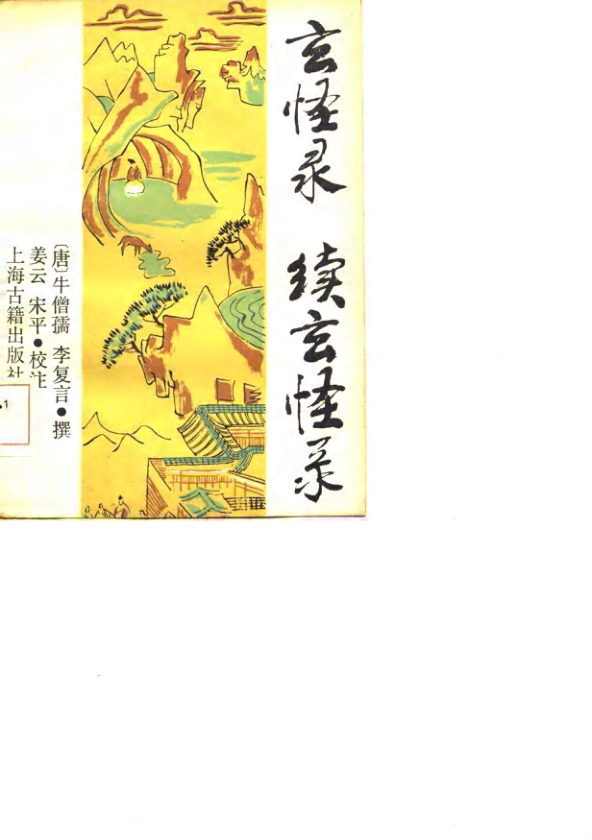 玄怪录 续玄怪录
〔唐〕牛僧孺 李复言●撰
姜云 宋平●校注
上海古籍出版社
1